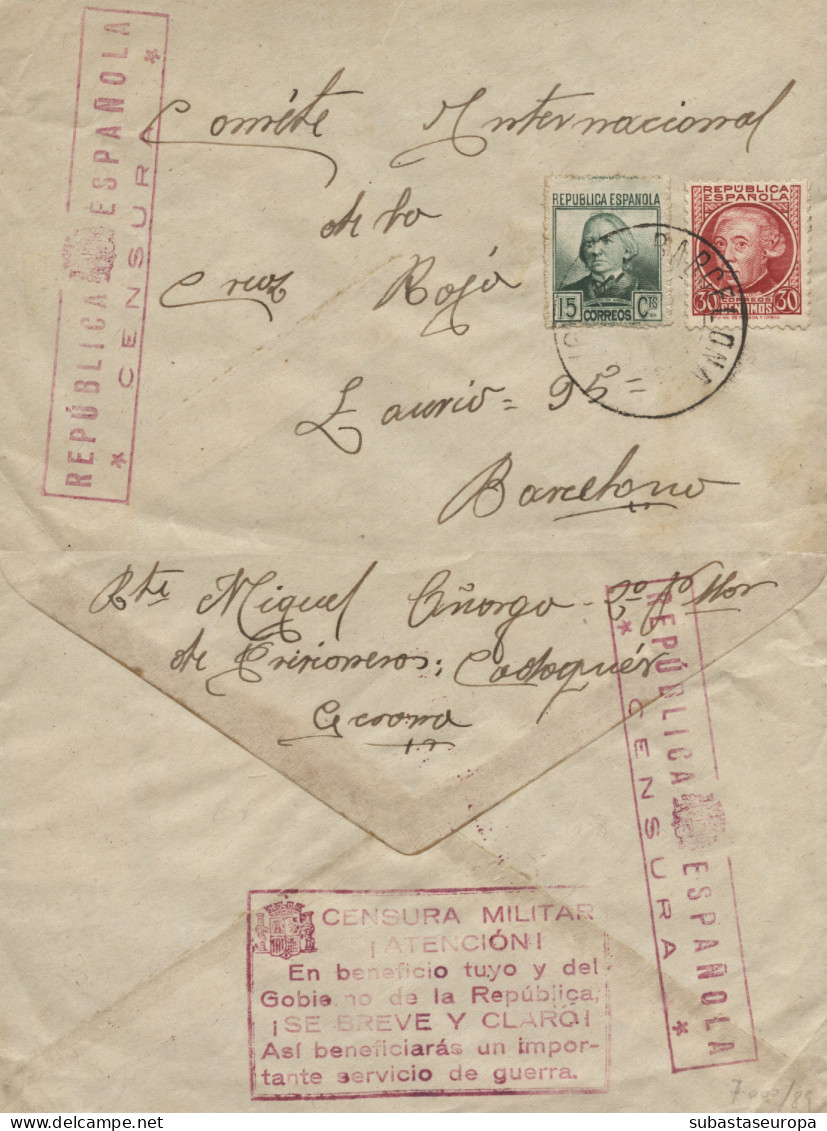 REPÚBLICA ESPAÑOLA
* CENSURA *
Cométe Internacional
de la
Cruz Roja
Lauria = 95 =
Barcelona
REPUBLICA ESPAÑOLA
15 CTS
CORREOS
REPÚBLICA
ESPAÑOLA
30 CORREOS 30
CENTIMOS
BARCELONA
Rte Miguel Añorga - 2º
de Prisioneros; Cadaqués
Gerona
REPÚBLICA ESPAÑOLA
* CENSURA *
CENSURA MILITAR
¡ATENCIÓN!
En beneficio tuyo y del
Gobierno de la República,
¡SE BREVE Y CLARO!
Así beneficiarás un impor-
tante servicio de guerra.
subastaseuropa